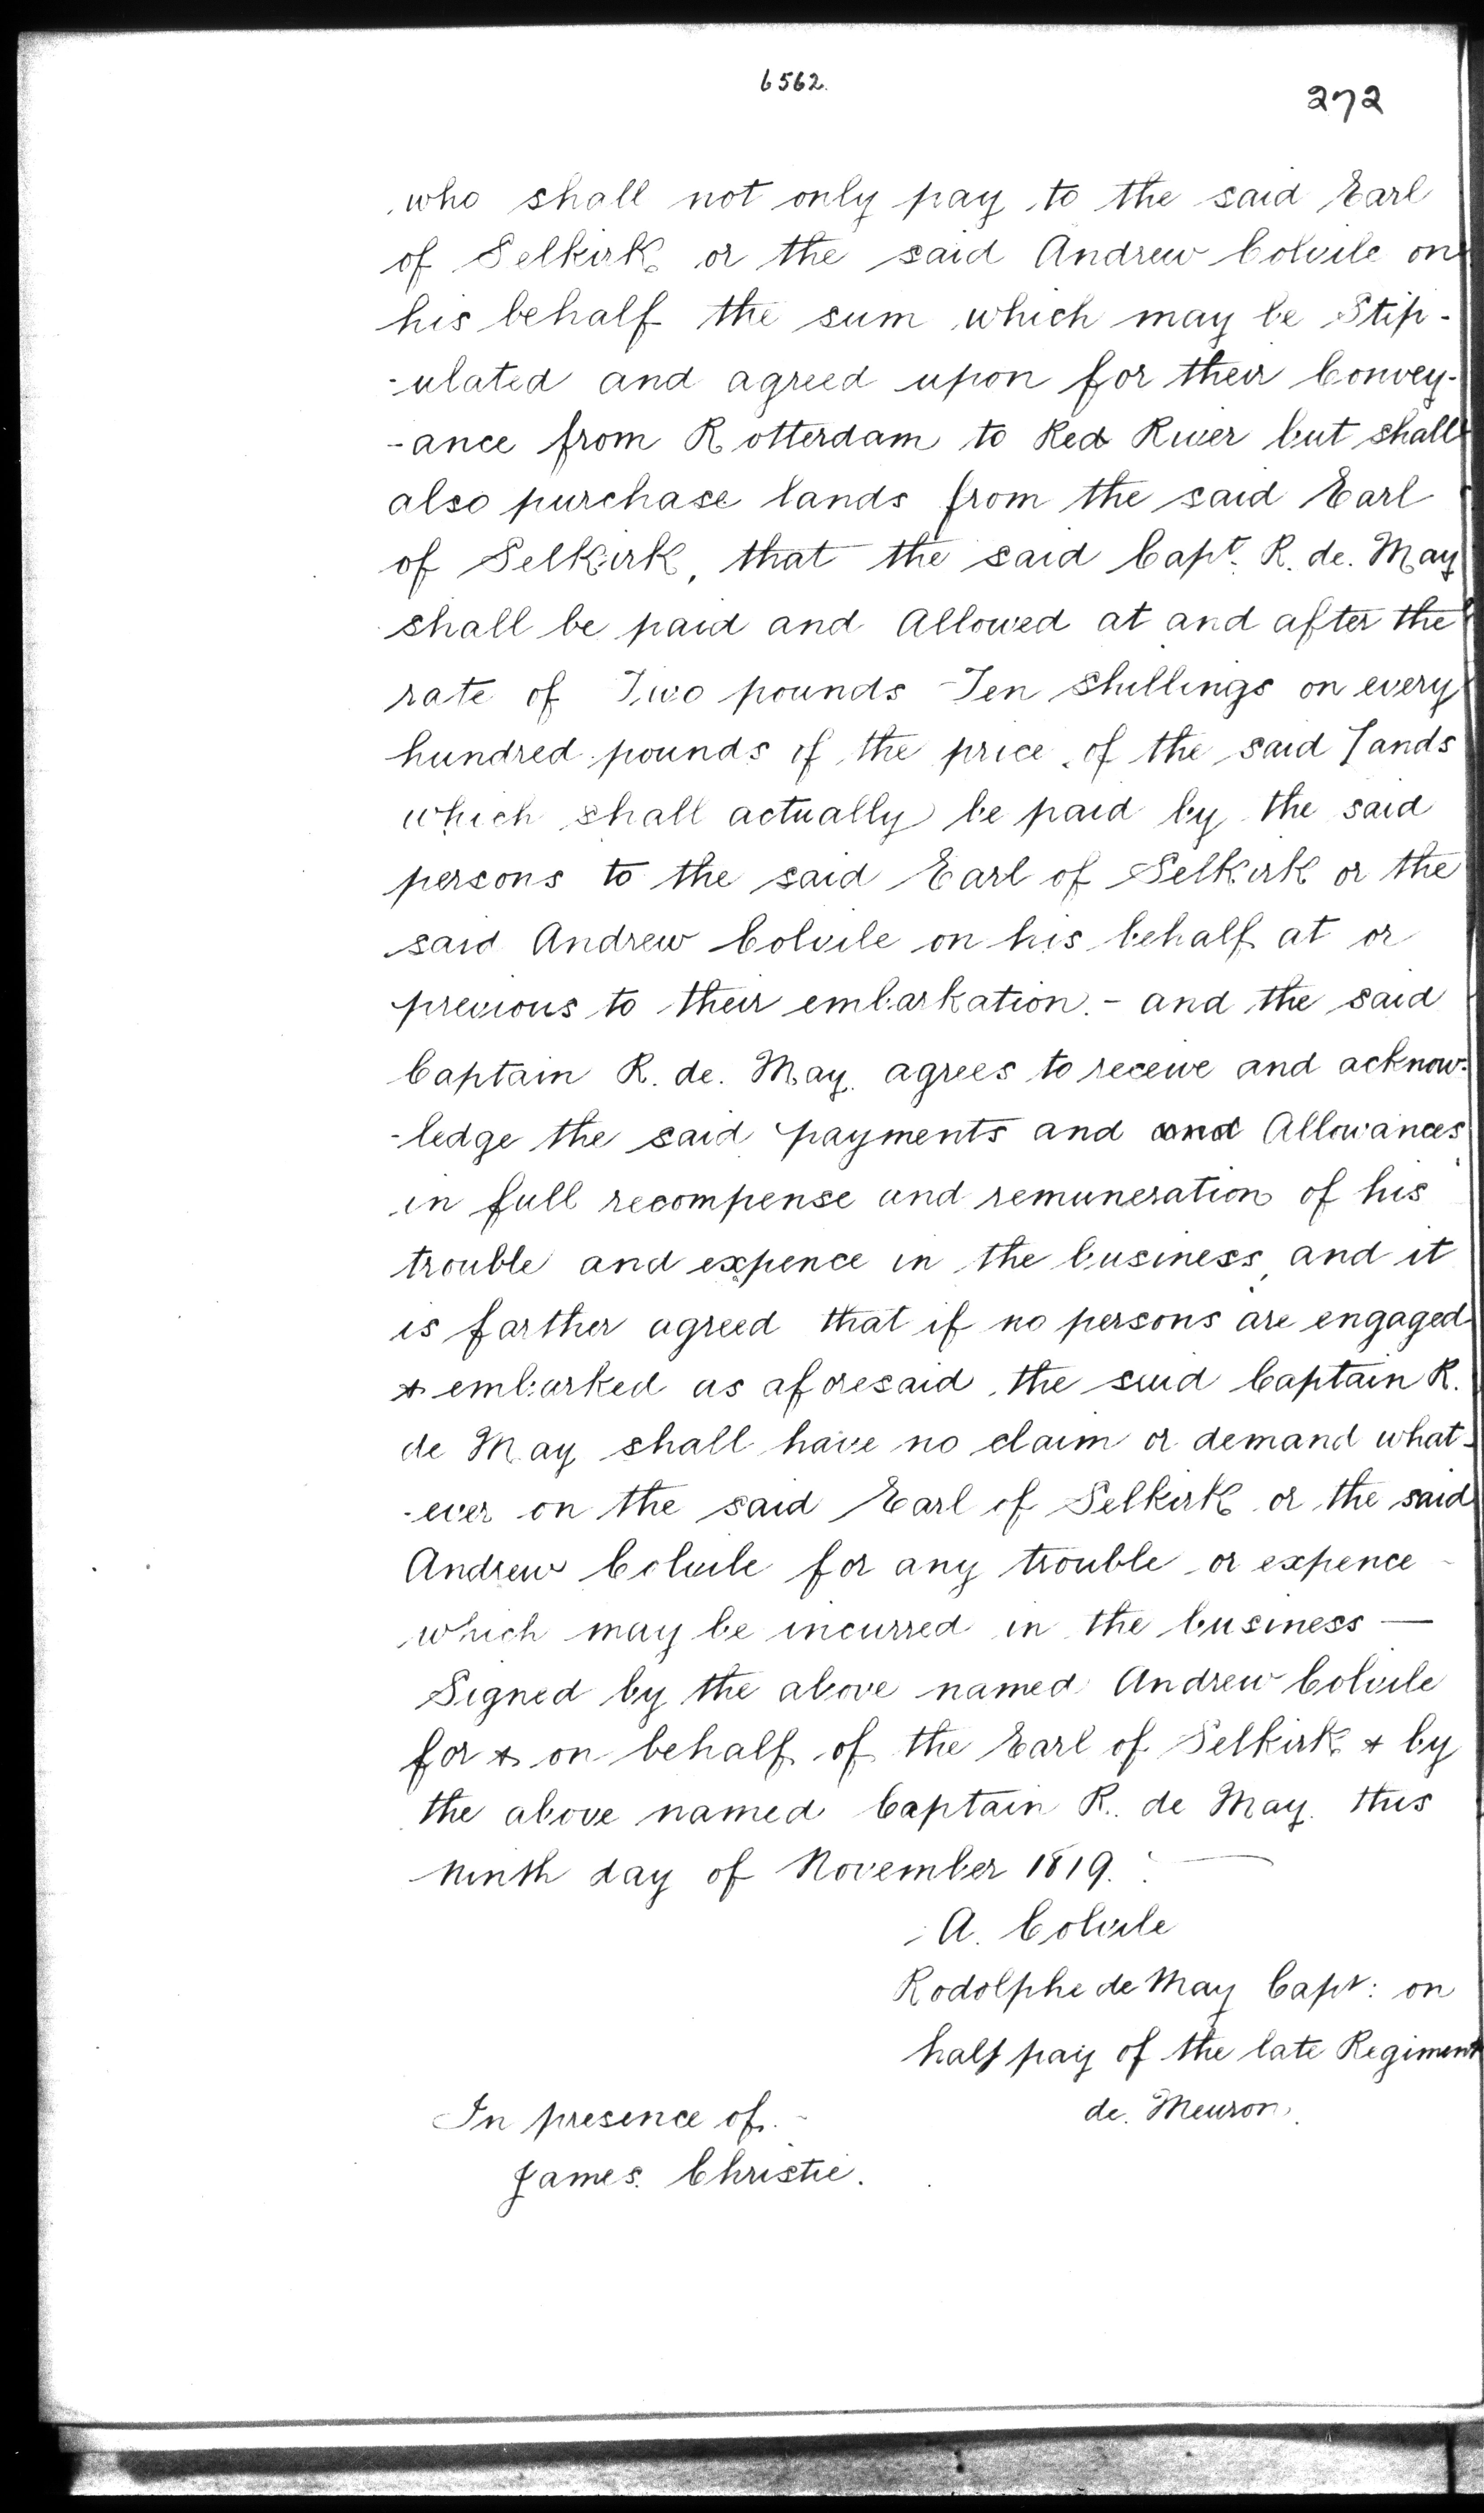 6562.
272
who shall not only pay to the said Earl
of Selkirk or the said Andrew Colvile on
his behalf the sum which may be Stip-
-ulated and agreed upon for their Convey-
-ance from Rotterdam to Red River but shall
also purchase lands from the said Earl
of Selkirk, that the said Capt. R. de. May
shall be paid and Allowed at and after the
rate of Two pounds Ten Shillings on every
hundred pounds of the price of the said lands
which shall actually be paid by the said
persons to the said Earl of Selkirk or the
said Andrew Colvile on his behalf at or
previous to their embarkation. - and the said
Captain R. de. May. agrees to receive and acknow-
-ledge the said payments and and Allowances
in full recompense and remuneration of his
trouble and expence in the business, and it
is farther agreed that if no persons are engaged
& embarked as aforesaid the said Captain R.
de May shall have no claim or demand what-
-ever on the said Earl of Selkirk or the said
Andrew Colvile for any trouble or expence
which may be incurred in the business —
Signed by the above named Andrew Colvile
for & on behalf of the Earl of Selkirk & by
the above named Captain R. de May. this
ninth day of November 1819. —
A. Colvile
Rodolphe de May Capt: on
half pay of the late Regiment
de. Meuron.
In presence of. -
James. Christie.